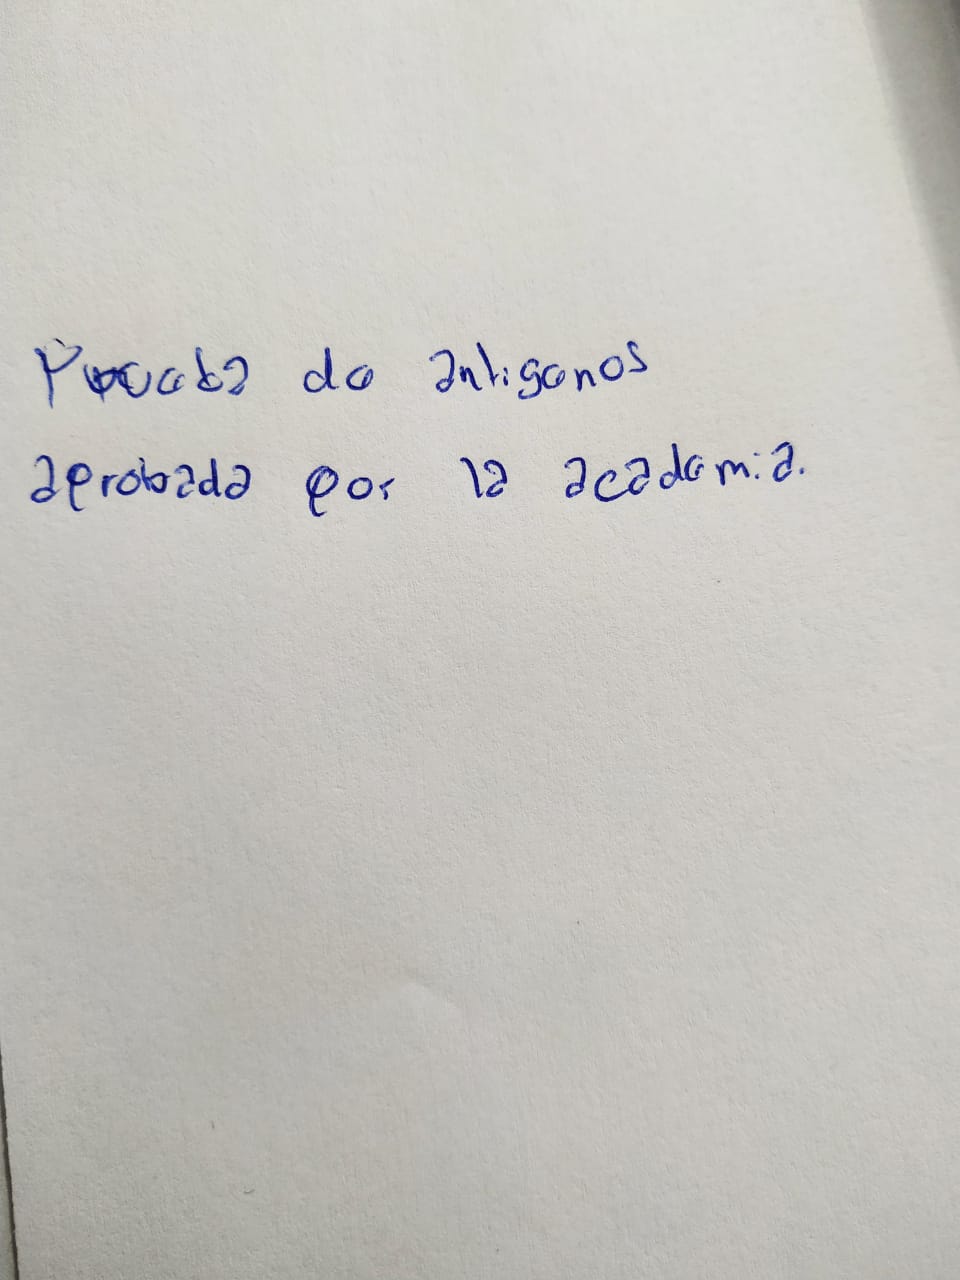 Prueba de antigenos
aprobada por la academia.